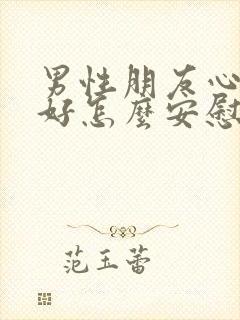 男性朋友心
好怎麼安慰
范玉蕾